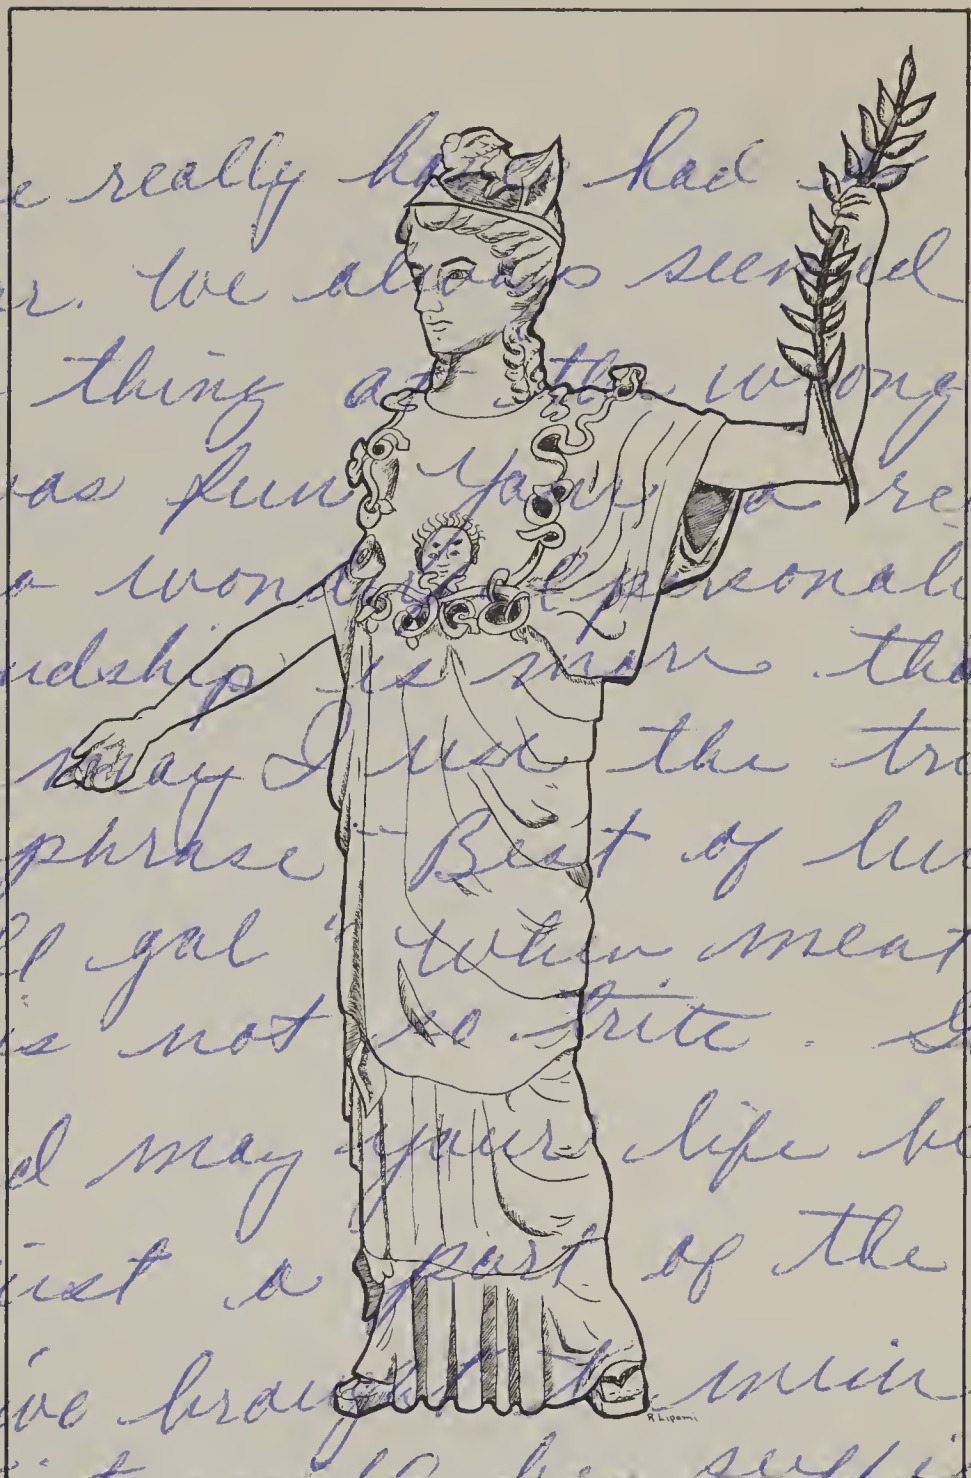 e really have had
er. We always seemed
thing at the wrong
was fun. Your a re
a wonderful personali
ndship is more tha
may I use the tri
phrase - Best of luc
gal" when meat
is not so trite.
d may your life be
ust a part of the
've brought to min
R Lipomi